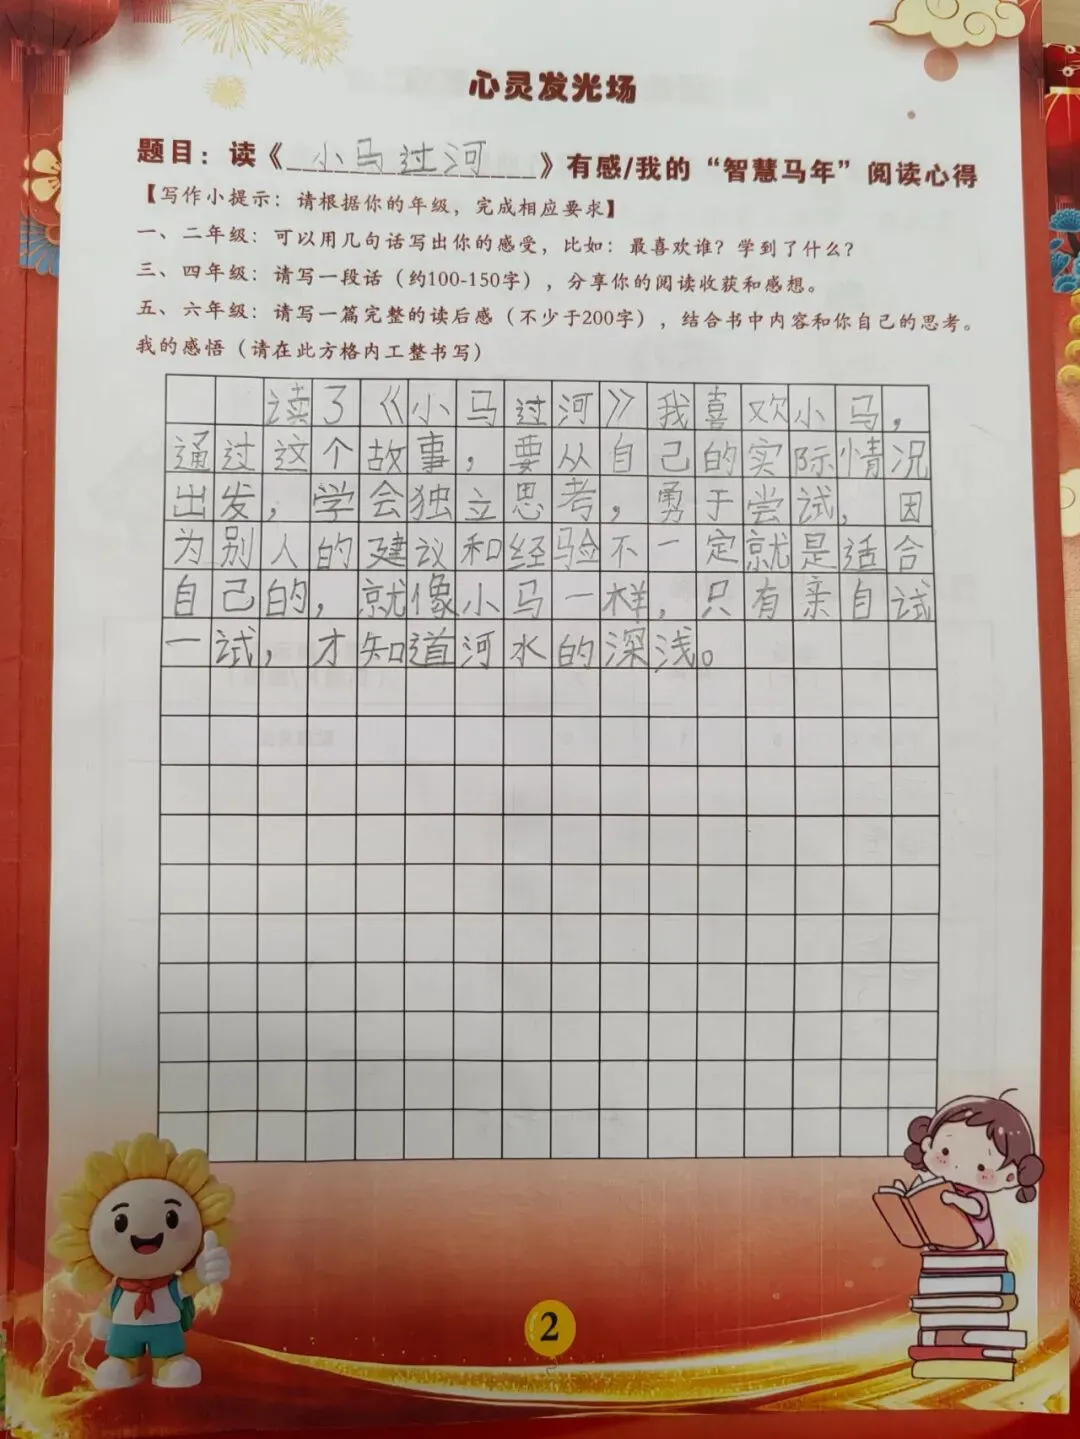 心灵发光场
题目：读《 小马过河 》有感/我的“智慧马年”阅读心得
【写作小提示：请根据你的年级，完成相应要求】
一、二年级：可以用几句话写出你的感受，比如：最喜欢谁？学到了什么？
三、四年级：请写一段话（约100-150字），分享你的阅读收获和感想。
五、六年级：请写一篇完整的读后感（不少于200字），结合书中内容和你自己的思考。
我的感悟（请在此方格内工整书写）
读了《小马过河》我喜欢小马，
通过这个故事，要从自己的实际情况
出发，学会独立思考，勇于尝试，因
为别人的建议和经验不一定就是适合
自己的，就像小马一样，只有亲自试
一试，才知道河水的深浅。
2